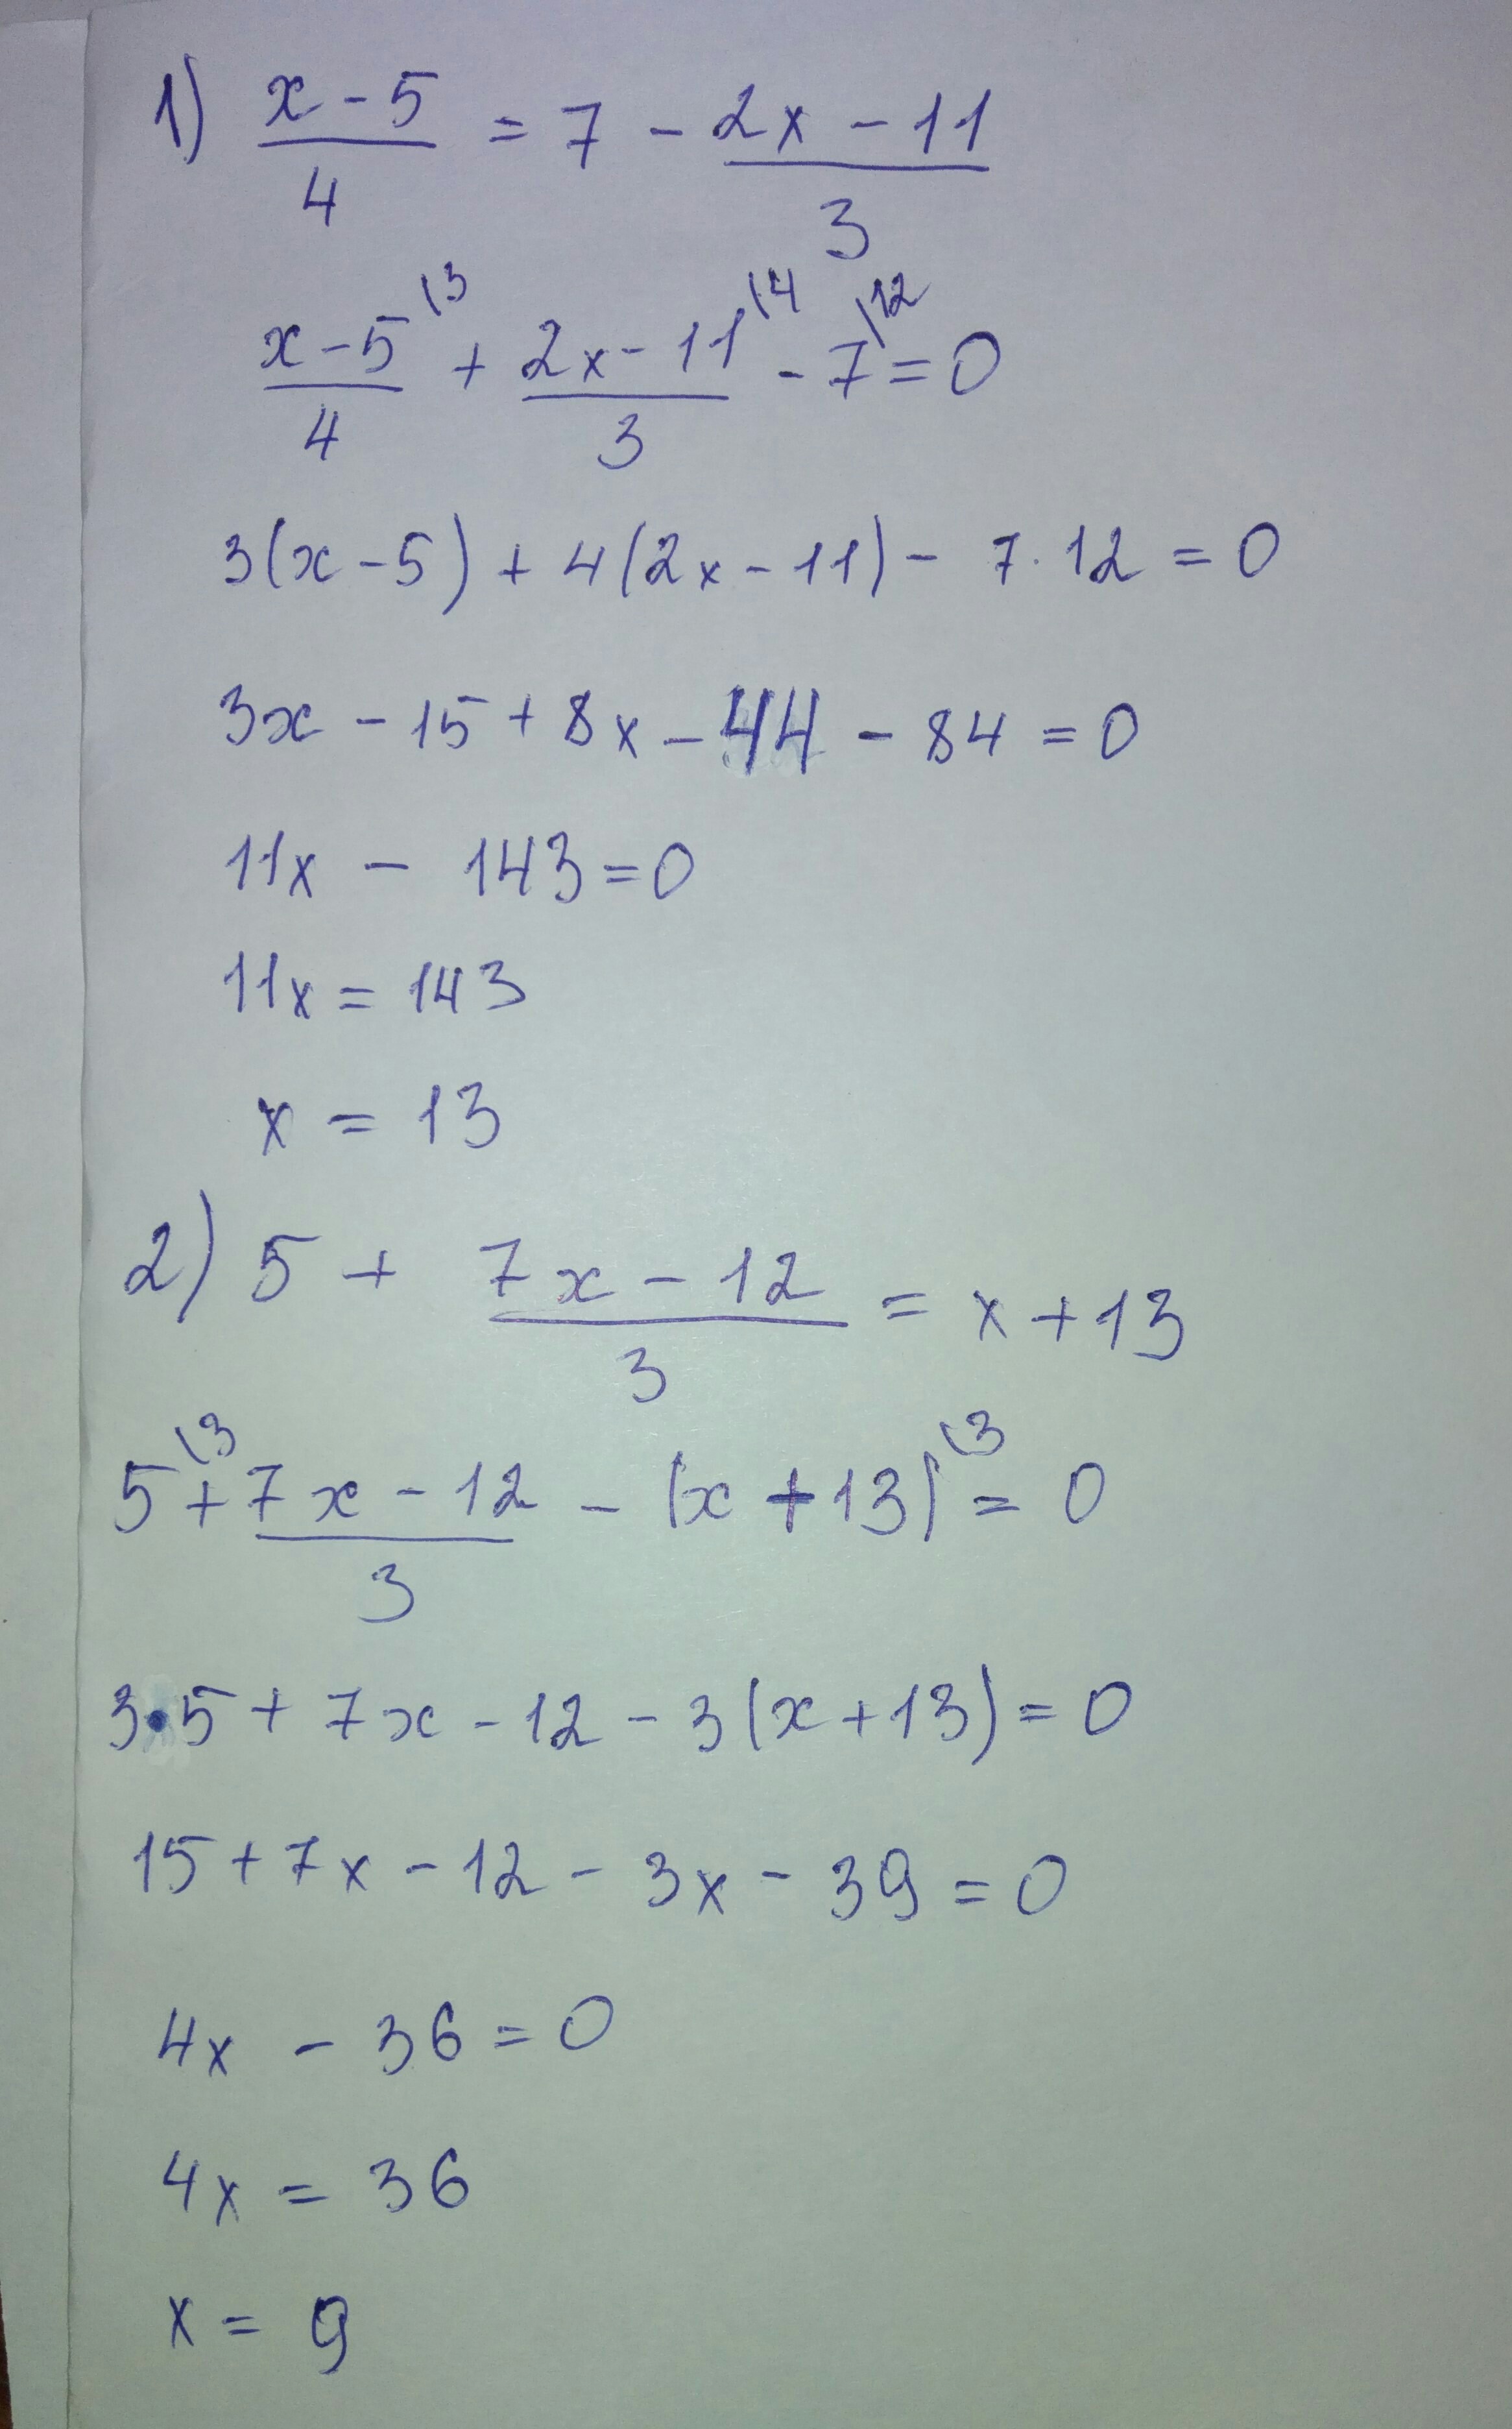 1) (x - 5)/4 = 7 - (2x - 11)/3
(x - 5)/4 \3 + (2x - 11)/3 \4 - 7 \12 = 0
3(x - 5) + 4(2x - 11) - 7 · 12 = 0
3x - 15 + 8x - 44 - 84 = 0
11x - 143 = 0
11x = 143
x = 13
2) 5 + (7x - 12)/3 = x + 13
5 \3 + (7x - 12)/3 - (x + 13) \3 = 0
3 · 5 + 7x - 12 - 3(x + 13) = 0
15 + 7x - 12 - 3x - 39 = 0
4x - 36 = 0
4x = 36
x = 9